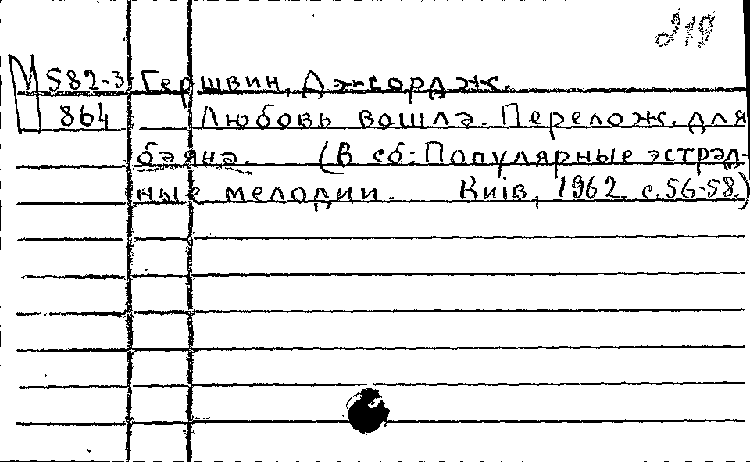 219
М 582-3 Гершвин, Джордж.
864 Любовь вошла. Перелож. для
баяна. (В сб: Популярные эстрад-
ные мелодии. Київ, 1962 с. 56-58)